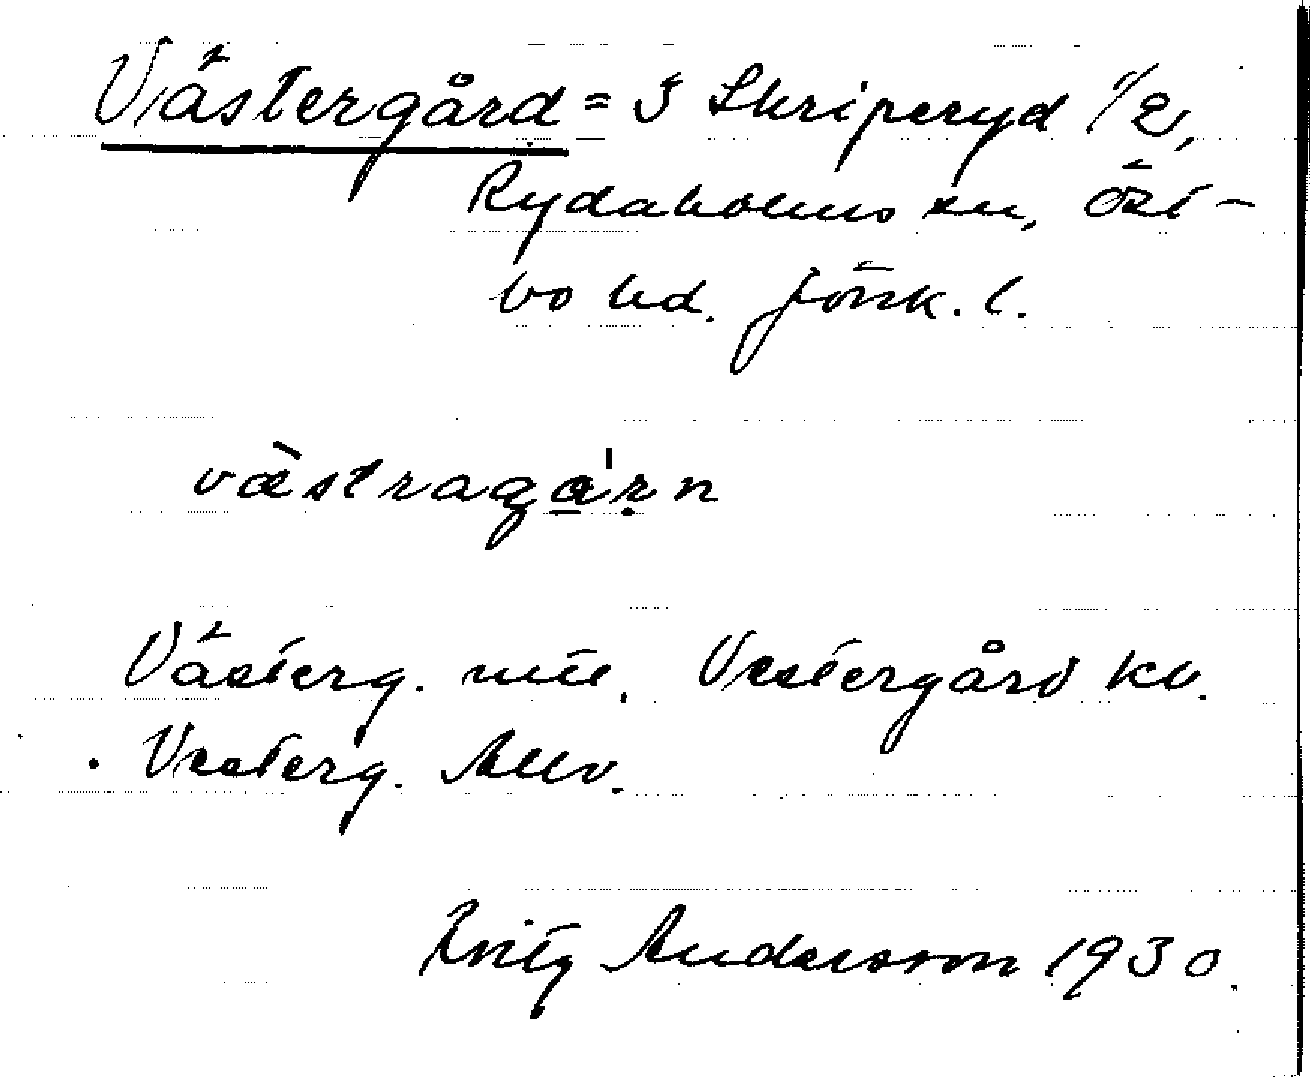 Västergård = 3 Skriperyd 1/2,
Rydaholms sn, Öst-
bo hd. Jönk. l.
västraga̱ṛn
Västerg. mtl. Vestergård kv.
Vesterg. Allv.
Fritz Andersson 1930.